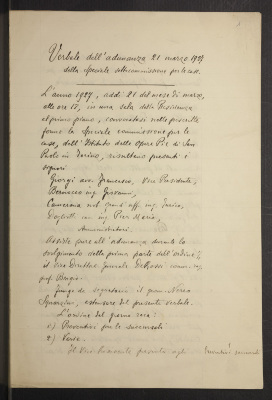 Verbale dell'adunanza 21 marzo 1927
della speciale sottocommissione per le case.
L'anno 1927, addì 21 del mese di marzo,
alle ore 17, in una sala della Presidenza
al primo piano, convocatasi nelle prescritte
forme la speciale commissione per le
case, dell'Istituto delle Opere Pie di San
Paolo in Torino, risultano presenti i
signori
Giorgi avv. Francesco, Vice Presidente,
Bernocco ing. Giovanni,
ing.
ing. Pier Maria,
Amministratori.
Assiste pure all'adunanza durante lo
svolgimento della prima parte dell'ordine
il Vice Direttore Generale
prof.
funge da segretario il
estensore del presente verbale.
L'ordine del giorno reca:
1) Provvedim. per le
2) Varie.
Il Vice Presidente